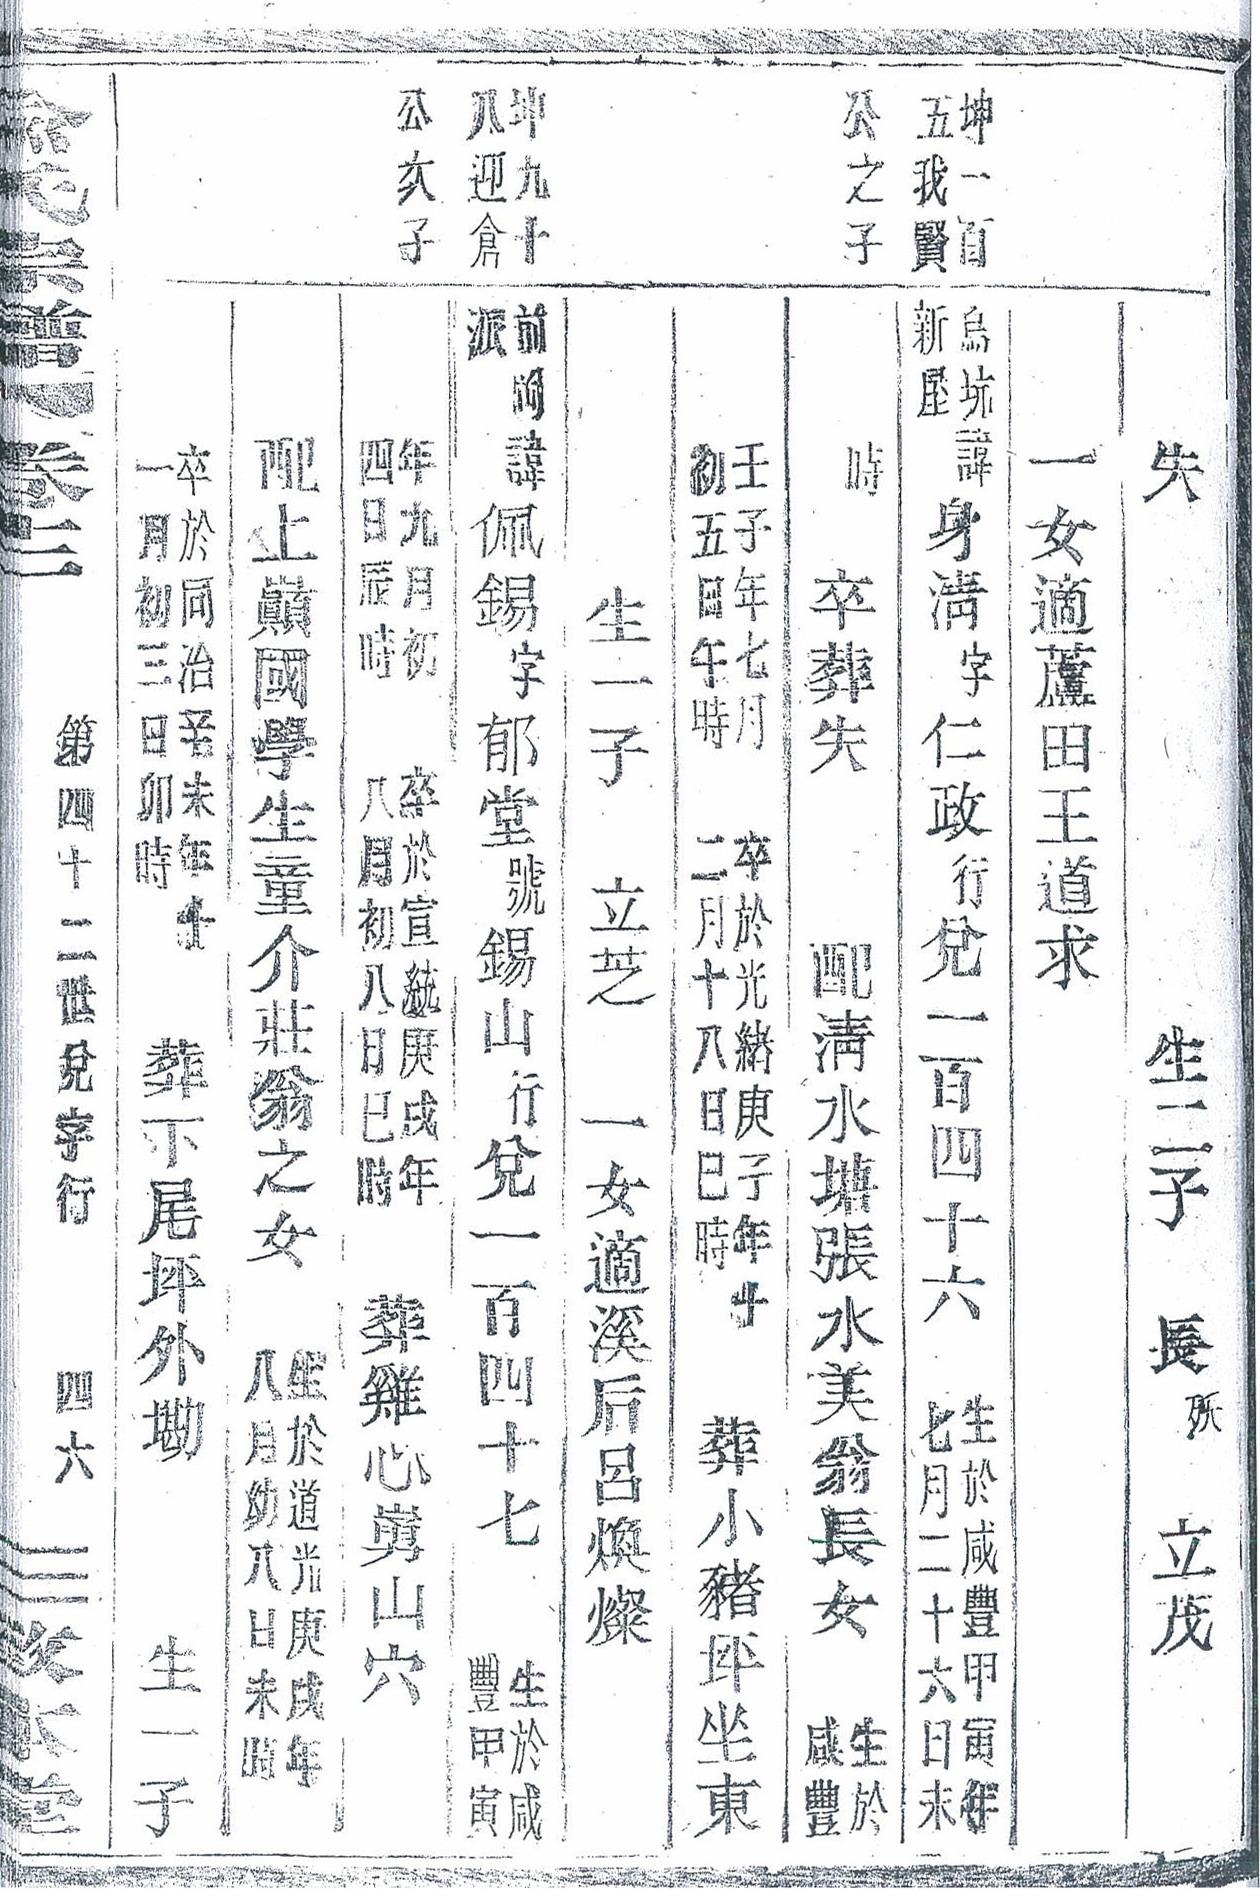 失　生二子　長殀　立茂
一女適蘆田王道求
坤一百
五我賢
公之子
烏坑諱
新屋
身淸字仁政行兌一百四十六
生於咸豐甲寅年
七月二十六日未
時　卒葬失　配淸水塘張水美翁長女
生於
咸豐
壬子年七月
初五日午時
卒於光緒庚子年十
二月十八日巳時
葬小豬坪坐東
生一子　立芝　一女適溪后呂煥燦
坤九十
八迎倉
公次子
前諱
派
佩錫字郁堂號錫山行兌一百四十七
生於咸
豐甲寅
年九月初
四日辰時
卒於宣統庚戌年
八月初八日巳時
葬雞心嵜山穴
配上巔國學生童介莊翁之女
生於道光庚戌年
八月幼八日未時
卒於同治辛未年十
一月初三日卯時
葬下尾坪外墈　生一子
宗譜　卷二
第四十二世兌字行　四六